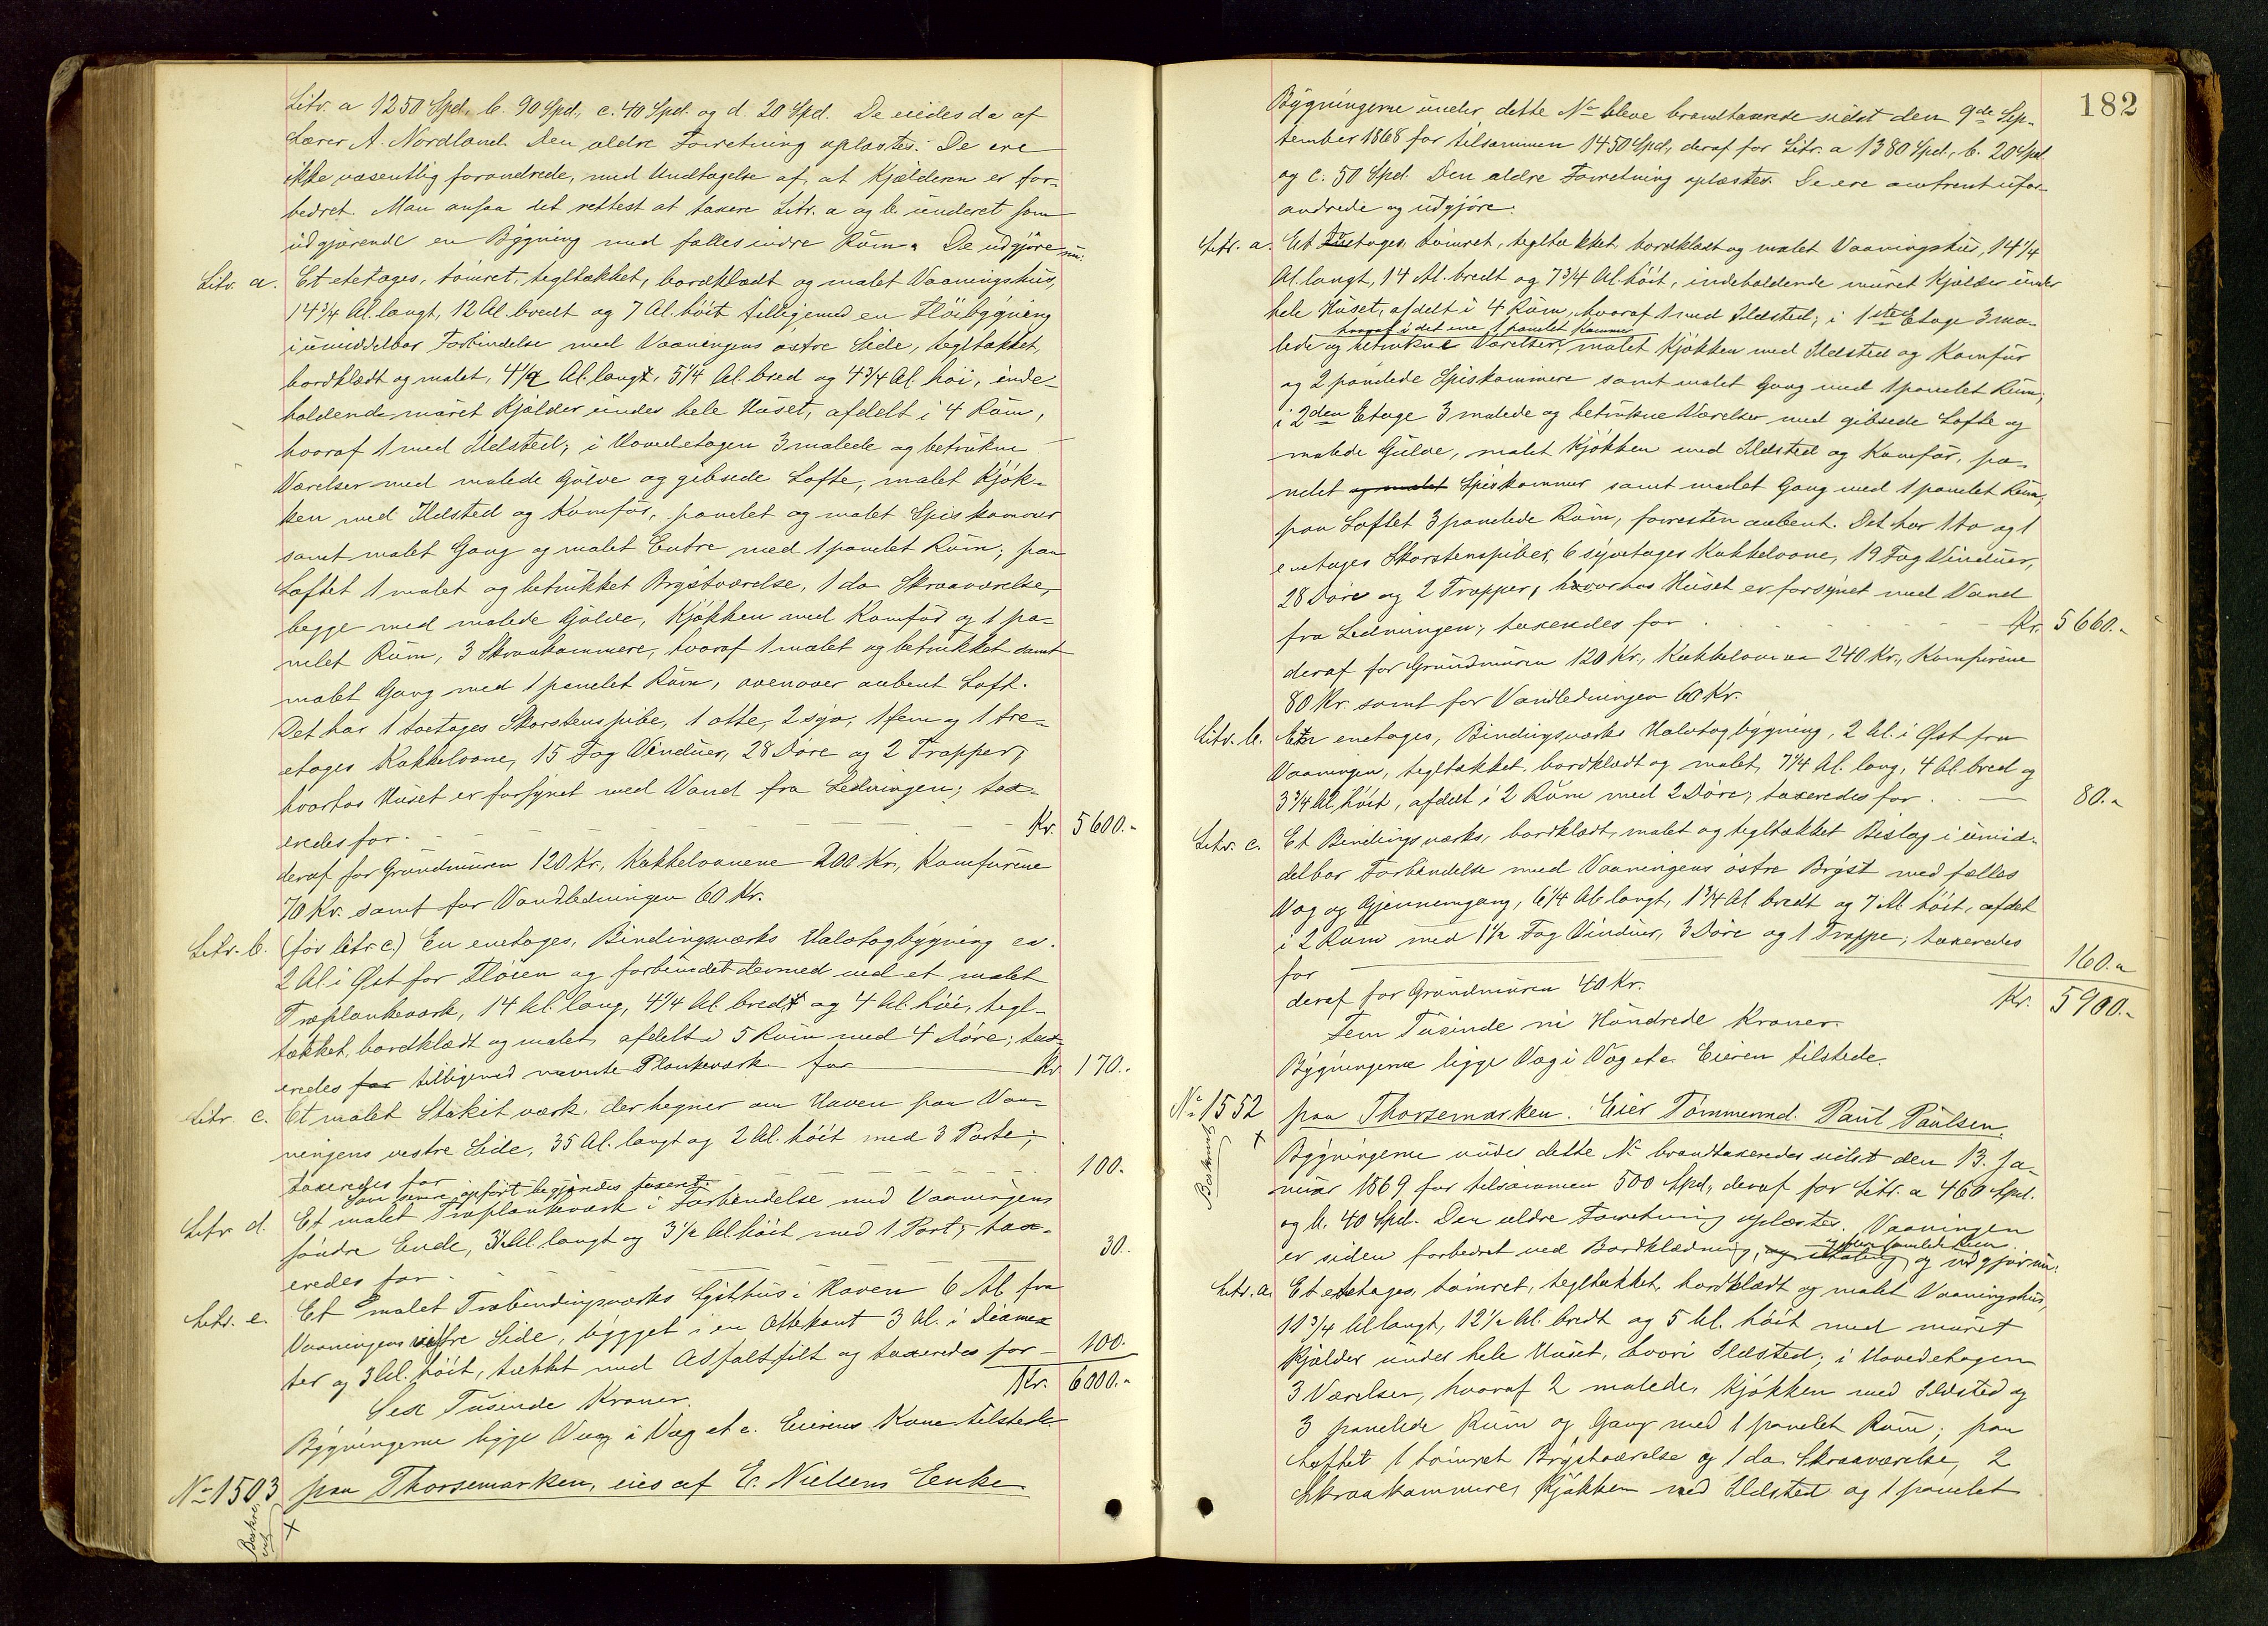 Litr. a 1250 Spd., b. 90 Spd., c. 40 Spd. og d. 20 Spd. De eiedes da af
Lærer A. Nordland. Den ældre Forretning oplæstes. De ere
ikke væsentlig forandrede, med Undtagelse af, at Kjælderen er for-
bedret. Man ansaa det rettest at taxere Litr. a og b. underet som
udgjørende en Bygning med fælles indre Rum. De udgjøre nu:
Litr. a. Et etetages, tømret, tegltækket, bordklædt og malet Vaaningshus,
14 3/4 Al. langt, 12 Al. bredt og 7 Al. høit tilligemed en Fløibygning
i umiddelbar Forbindelse med Vaaningens østre Side, tegltækket,
bordklædt og malet, 4 1/2 Al. lang, 5 1/4 Al. bred og 4 3/4 Al. høi, inde-
holdende muret Kjælder under hele Huset, afdelt i 4 Rum,
hvoraf 1 med Ildsted; i Hovedetagen 3 malede og betrukne
Værelser med malede Gulve og gibsede Lofte, malet Kjøk-
ken med Ildsted og Komfur, panelet og malet Spiskammer
samt malet Gang og malet Entre med 1 panelet Rum; paa
Loftet 1 malet og betrukket Brystværelse, 1 do Skraaværelse,
begge med malede Gulve, Kjøkken med Komfur og 1 pa-
nelet Rum, 3 Skraakammere, hvoraf 1 malet og betrukket samt
malet Gang med 1 panelet Rum, ovenover aabent Loft.
Det har 1 toetages Skorstenspibe, 1 otte, 2 syv, 1 fem og 1 tre-
etages Kakkelovne, 15 Fag Vinduer, 28 Døre og 2 Trapper,
hvorhos Huset er forsynet med Vand fra Ledningen; tax-
eredes for Kr. 5600.-
deraf for Grundmuren 120 Kr., Kakkelovnene 200 Kr., Komfurene
70 Kr. samt for Vandledningen 60 Kr.
Litr. b. (før litr. c.) En enetages, Bindingsværks Halvtagbygning ca.
2 Al. i Øst for Fløien og forbundet dermed ved et malet
Træplankeværk, 14 Al. lang, 4 1/4 Al. bred og 4 Al. høi, tegl-
tækket, bordklædt og malet, afdelt i 5 Rum med 4 Døre; tax-
eredes for tilligemed nævnte Plankeværk for Kr. 170.-
Litr. c. Et malet Stakitværk, der hegner om Haven paa Vaa-
ningens vestre Side, 35 Al. langt og 2 Al. høit med 3 Porte;
taxeredes for 100.
Litr. d. Et malet Træplankeværk i Forbindelse med Vaaningens
søndre Ende, 3 1/2 Al. langt og 3 1/2 Al. høit med 1 Port; tax-
eredes for 30.
Litr. e. Et malet Træbindingsværks Lysthus i Haven 6 Al. fra
Vaaningens vestre Side, bygget i en Ottekant 3 Al. i Diame-
ter og 3 Al. høit, tækket med Asfaltfilt og taxeredes for 100.
Kr. 6000.-
Sex Tusinde Kroner.
Bygningerne ligge Væg i Væg etc. Eierens Kone tilstede
No 1503 paa Thorsemarken, eies af E. Nielsens Enke
Beskrevet
182
Bygningerne under dette No bleve brandtaxerede sidst den 9de Sep-
tember 1868 for tilsammen 1450 Spd., deraf for Litr. a 1380 Spd., b. 20 Spd.
og c. 50 Spd. Den ældre Forretning oplæstes. De ere omtrent ufor-
andrede og udgjøre:
Litr. a. Et toetages, tømret, tegltækket, bordklædt og malet Vaaningshus, 14 1/4
Al. langt, 14 Al. bredt og 7 3/4 Al. høit, indeholdende muret Kjælder under
hele Huset, afdelt i 4 Rum, hvoraf 1 med Ildsted; i 1ste Etage 3 ma-
hvoraf i det ene 1 panelet Kammer
lede og betrukne Værelser, malet Kjøkken med Ildsted og Komfur
og 2 panelede Spiskammere samt malet Gang med 1 panelet Rum;
i 2den Etage 3 malede og betrukne Værelser med gibsede Lofte og
malede Gulve, malet Kjøkken med Ildsted og Komfur, pa-
nelet og malet Spiskammer samt malet Gang med 1 panelet Rum;
paa Loftet 3 panelede Rum, forresten aabent. Det har 1 to og 1
enetages Skorstenspiber, 6 syvetages Kakkelovne, 19 Fag Vinduer,
28 Døre og 2 Trapper, hvorhos Huset er forsynet med Vand
fra Ledningen; taxeredes for Kr. 5660.-
deraf for Grundmuren 120 Kr., Kakkelovnene 240 Kr., Komfurene
80 Kr. samt for Vandledningen 60 Kr.
Litr. b. En enetages, Bindingsværks Halvtagbygning, 2 Al. i Øst fra
Vaaningen, tegltækket, bordklædt og malet, 7 1/4 Al. lang, 4 Al. bred og
3 3/4 Al. høit, afdelt i 2 Rum med 2 Døre; taxeredes for 80.-
Litr. c. Et Bindingsværks, bordklædt, malet og tegltækket Bislag i umid-
delbar Forbindelse med Vaaningens østre Bryst med fælles
Væg og Gjennemgang, 6 1/4 Al. langt, 1 3/4 Al. bredt og 7 Al. høit, afdelt
i 2 Rum med 1 1/2 Fag Vinduer, 3 Døre og 1 Trappe; taxeredes
for 160.-
deraf for Grundmuren 40 Kr. Kr. 5900.-
Fem Tusinde ni Hundrede Kroner.
Bygningerne ligge Væg i Væg etc. Eieren tilstede.
No 1552 paa Thorsemarken. Eier Tømmermd. Paul Paulsen.
Beskrevet
Bygningerne under dette No brandtaxeredes sidst den 13. Ja-
nuar 1869 for tilsammen 500 Spd., deraf for Litr. a 460 Spd.
og b. 40 Spd. Den ældre Forretning oplæstes. Vaaningen
er siden forbedret ved Bordklædning, og udgjør nu:
Litr. a. Et etetages, tømret, tegltækket, bordklædt og malet Vaaningshus,
11 3/4 Al. langt, 12 1/2 Al. bredt og 5 Al. høit med muret
Kjælder under hele Huset, hvori Ildsted; i Hovedetagen
3 Værelser, hvoraf 2 malede, Kjøkken med Ildsted og
3 panelede Rum og Gang med 1 panelet Rum; paa
Loftet 1 tømret Brystværelse og 1 do Skraaværelse, 2
Skraakammere, Kjøkken med Ildsted og 1 panelet